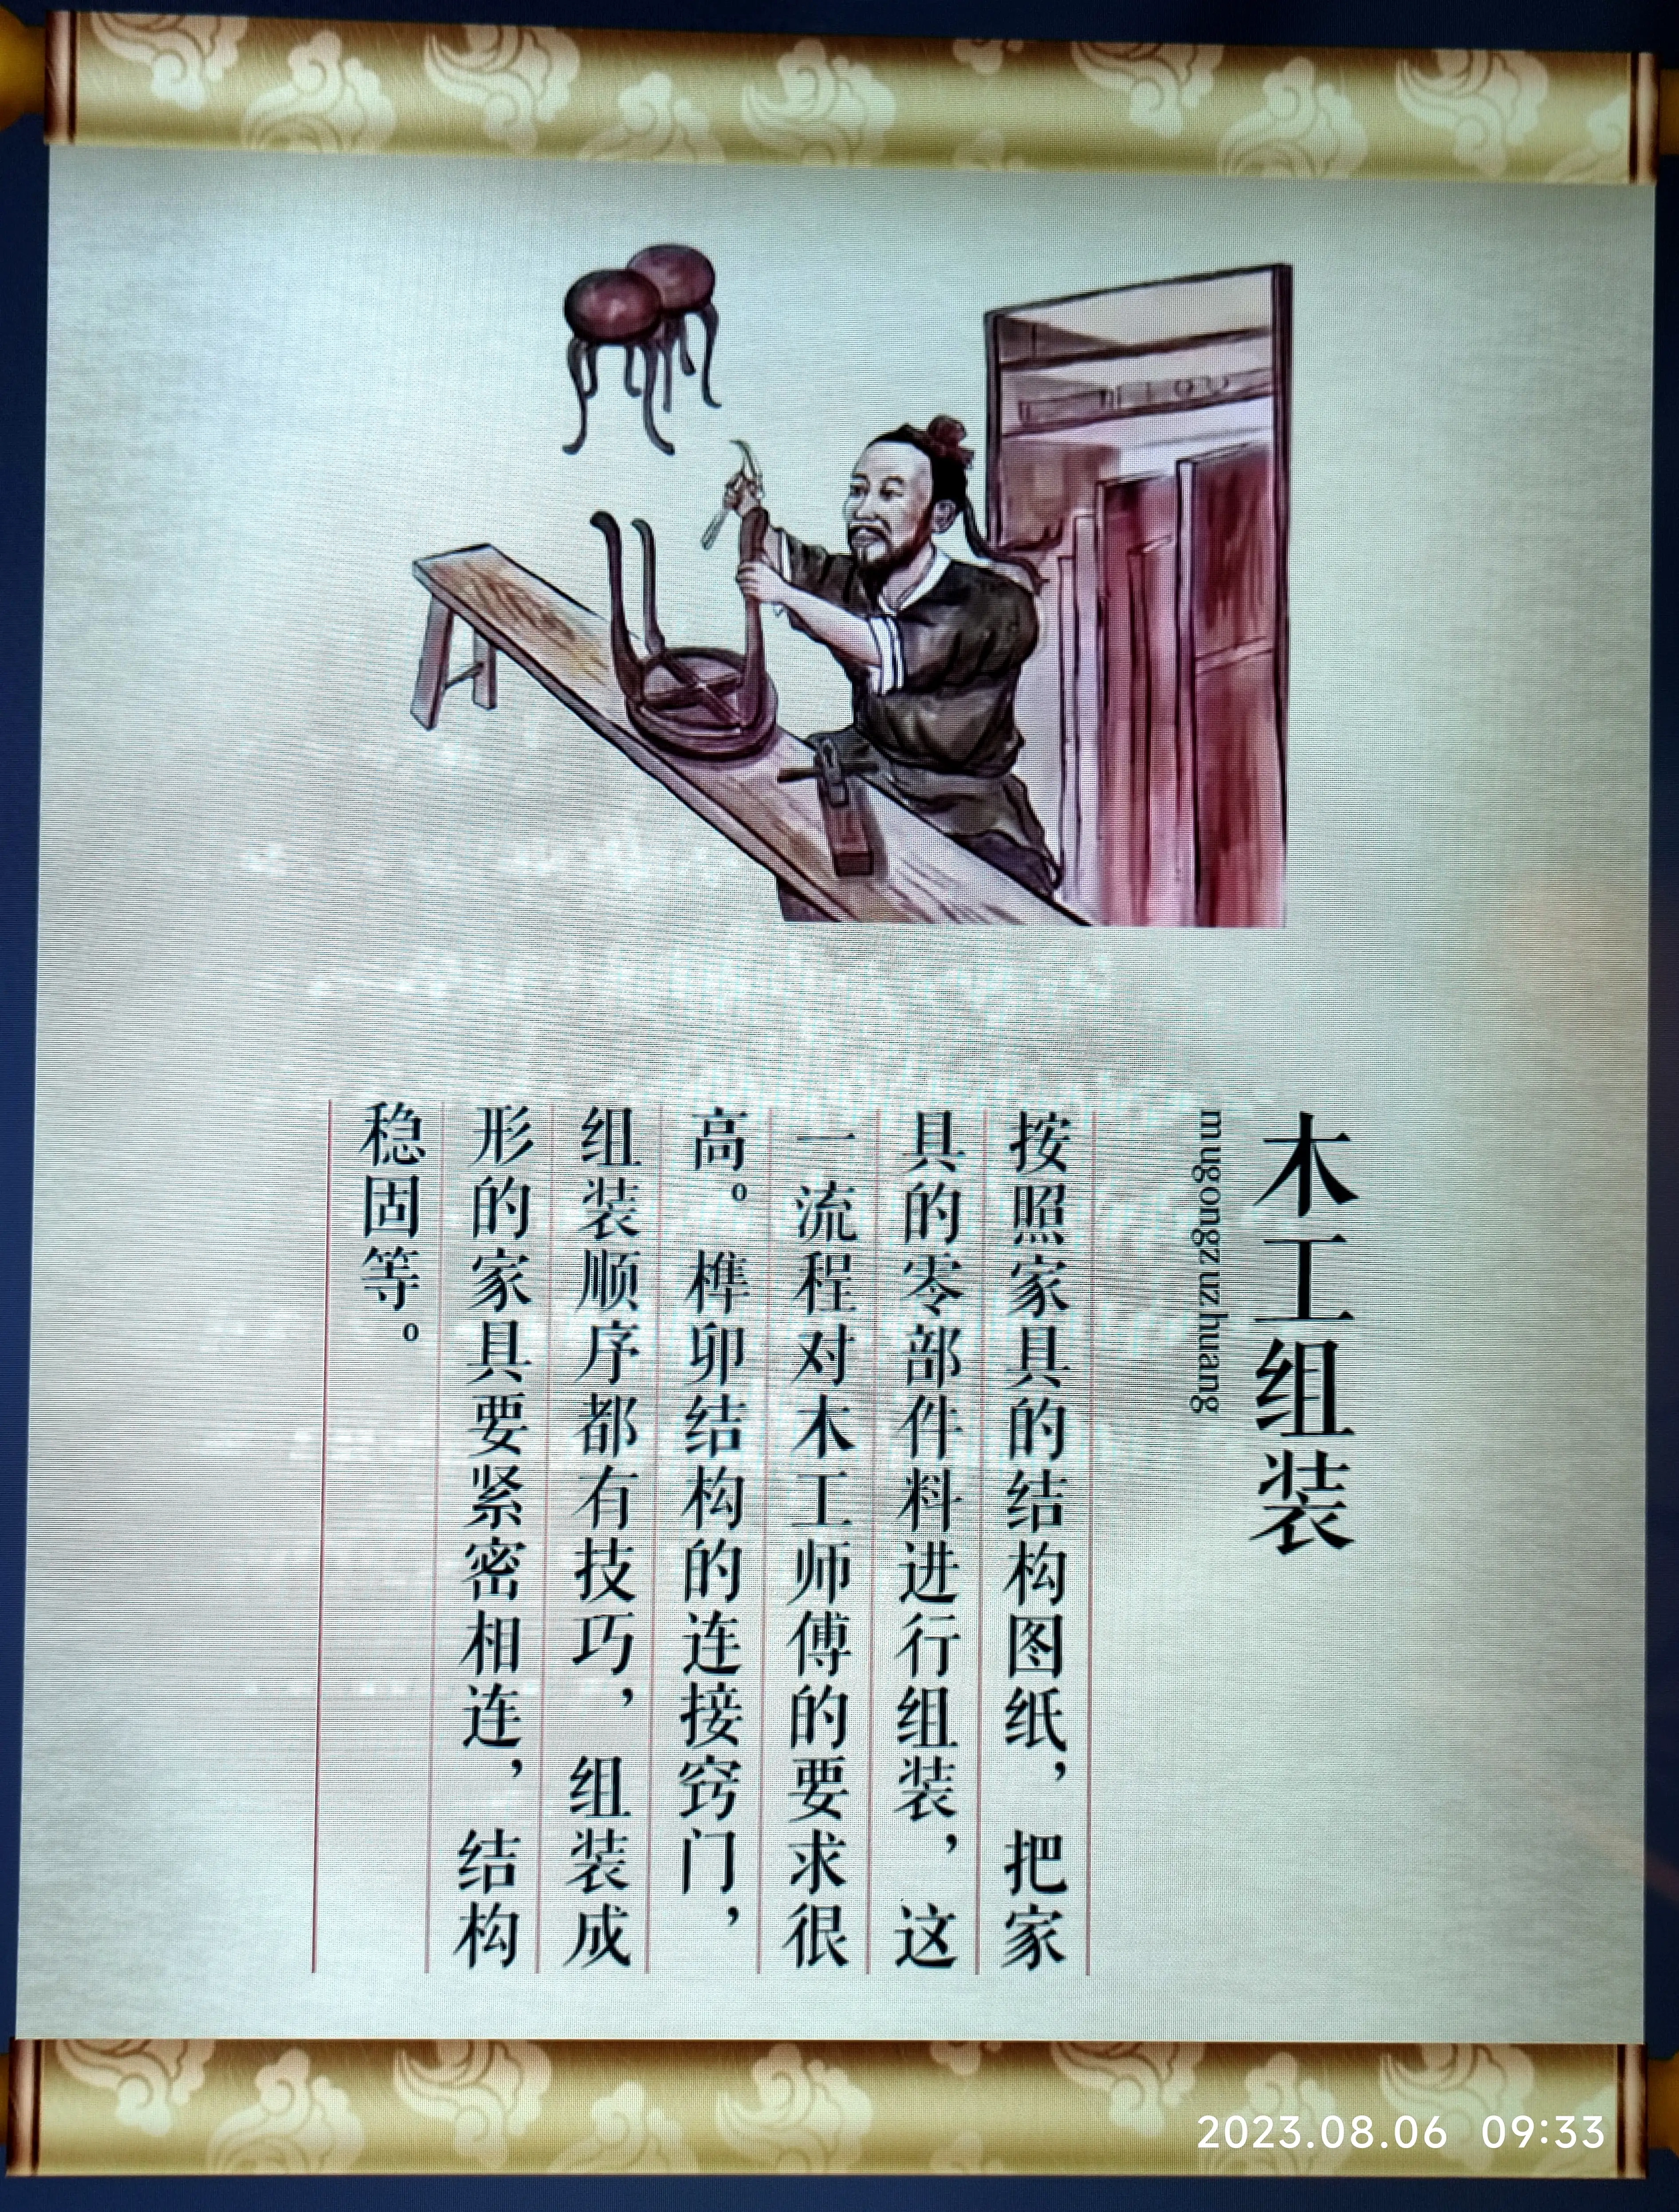 木工组装
mugongzuzhuang
按照家具的结构图纸，把家
具的零部件料进行组装，这
一流程对木工师傅的要求很
高。榫卯结构的连接窍门，
组装顺序都有技巧，组装成
形的家具要紧密相连，结构
稳固等。
2023.08.06 09:33